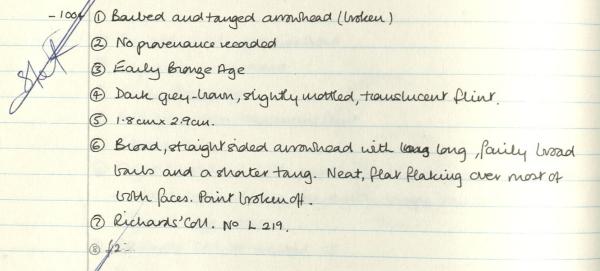 -1004 ① Barbed and tanged arrowhead (broken)
② No provenance recorded
③ Early Bronze Age
④ Dark grey-brown, slightly mottled, translucent flint.
⑤ 1.8cm x 2.9cm.
⑥ Broad, straight sided arrowhead with long, fairly broad
barbs and a shorter tang. Neat, flat flaking over most of
both faces. Point broken off.
⑦ Richards' Coll. No L 219.
⑧ £2